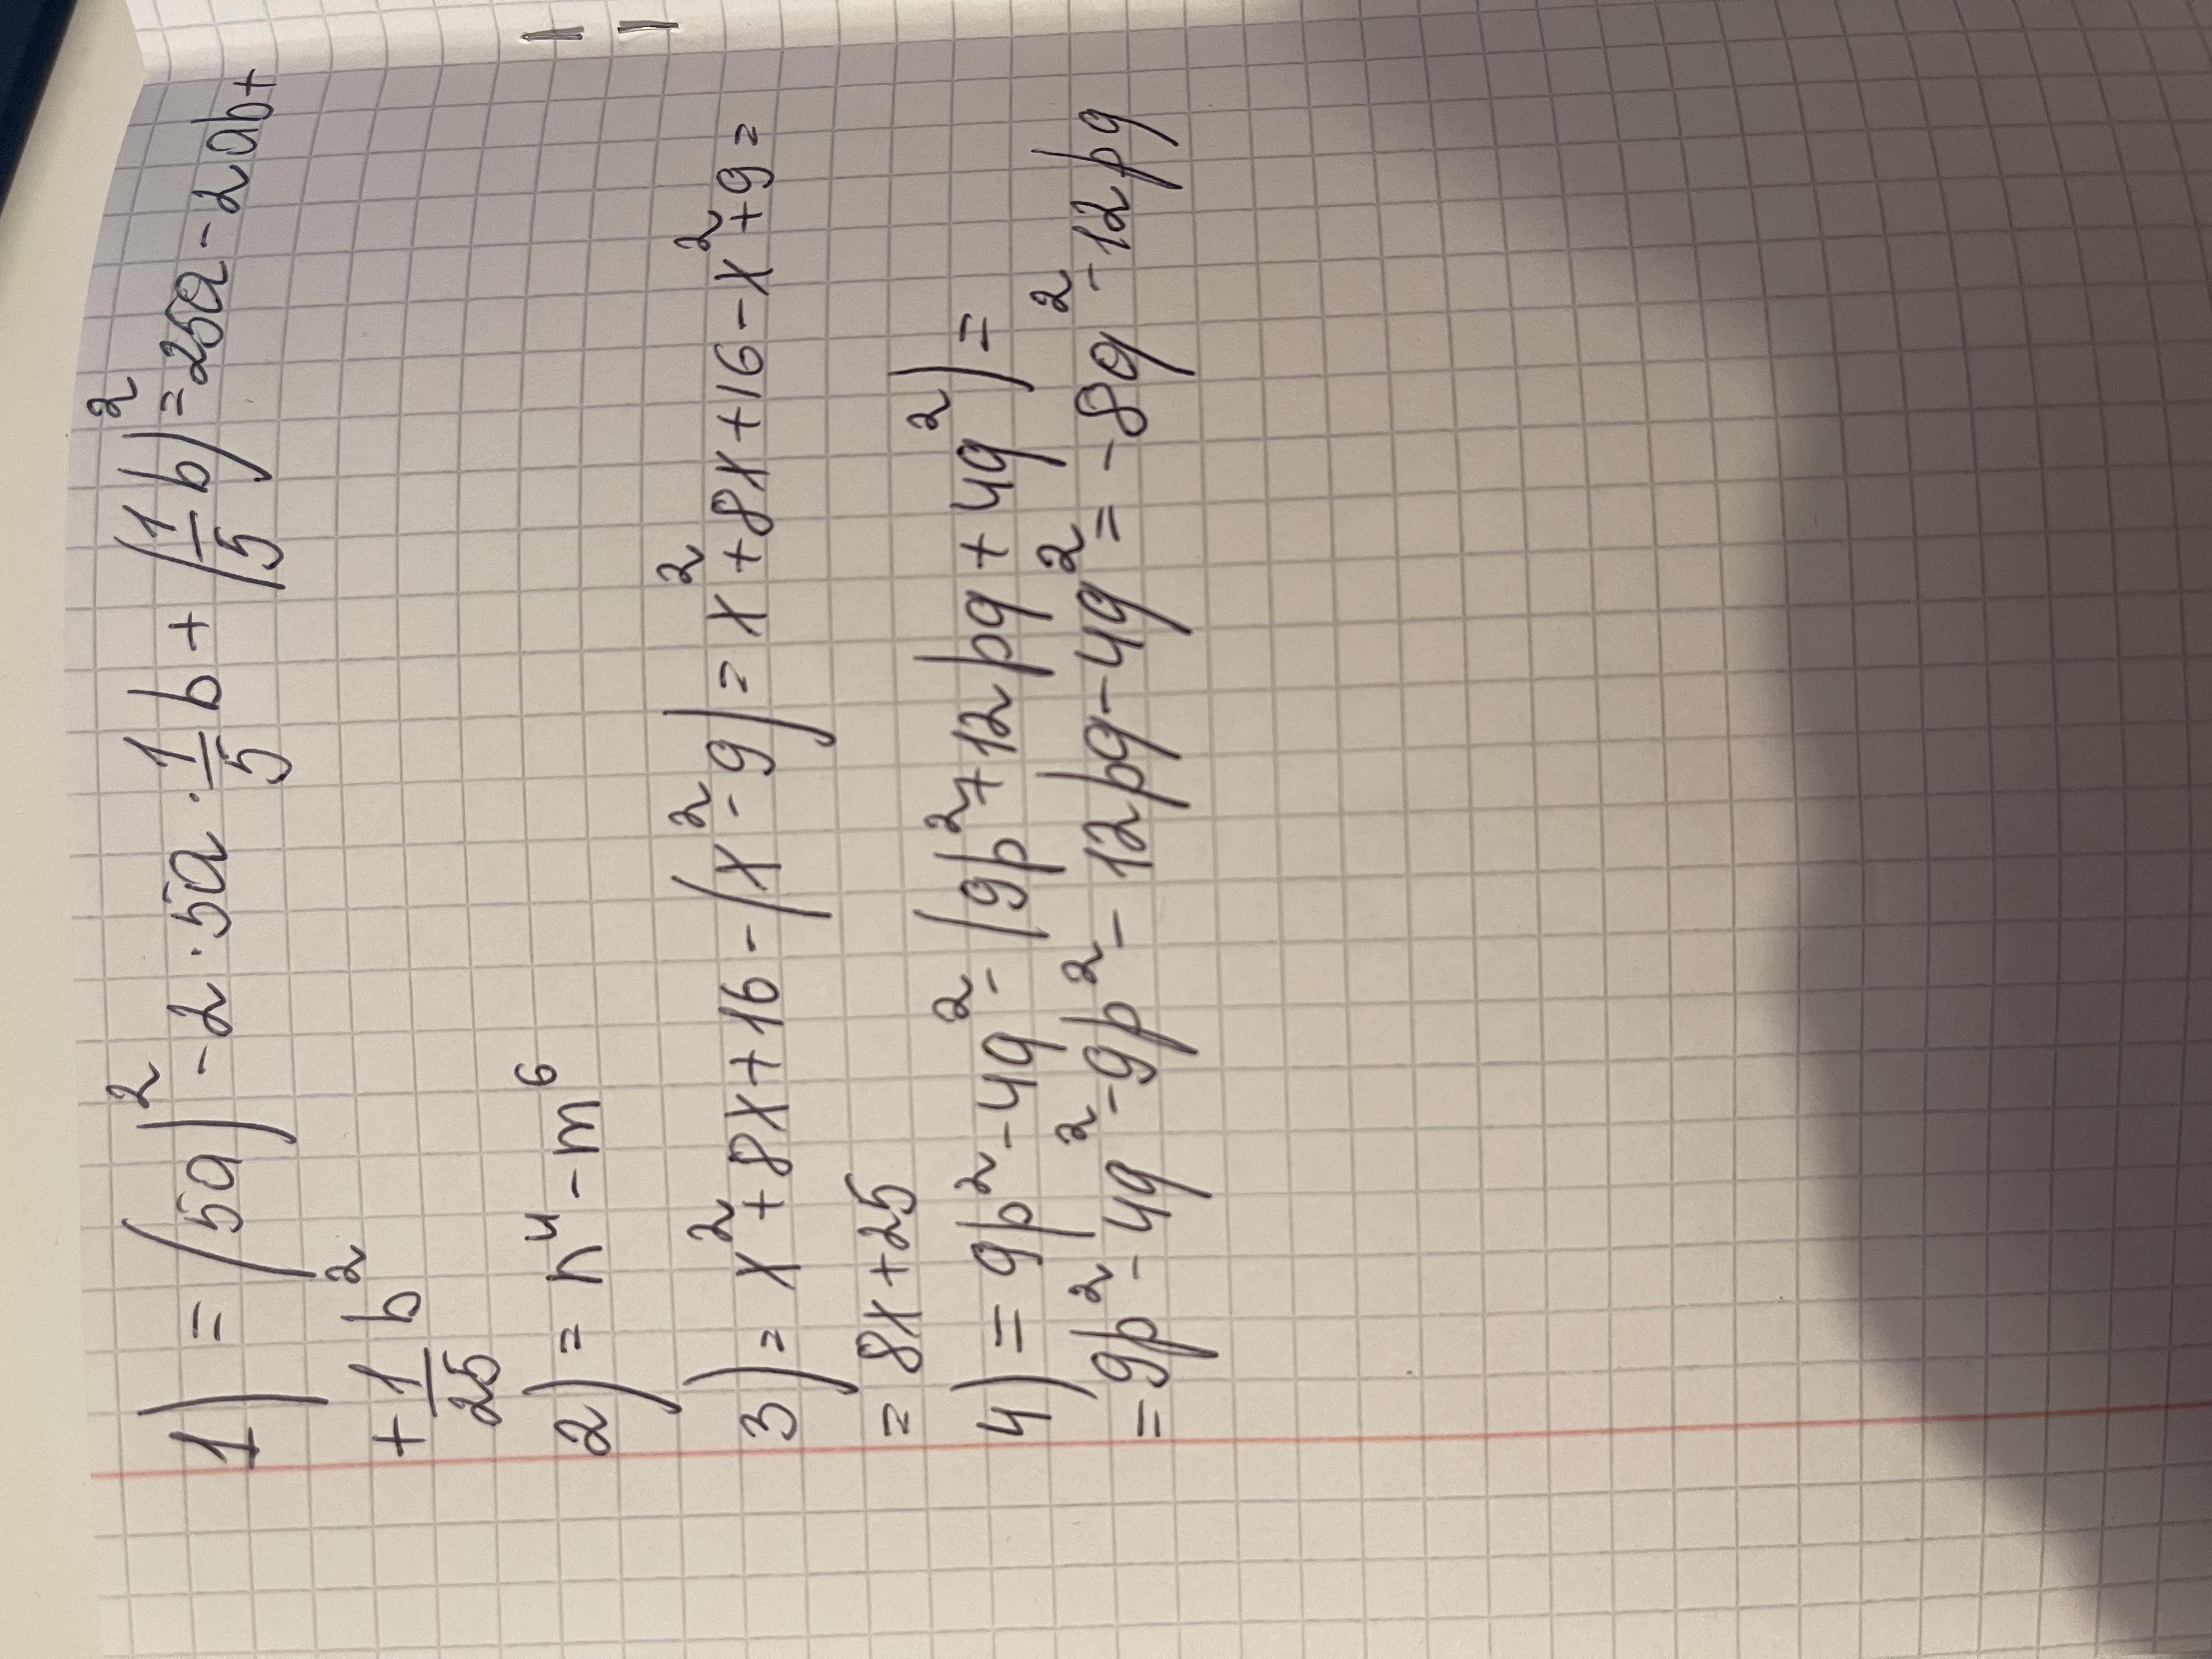 1) = (5a)² - 2 · 5a · 1/5 b + (1/5 b)² = 25a - 2ab +
+ 1/25 b²
2) = n⁴ - m⁶
3) = x² + 8x + 16 - (x² - 9) = x² + 8x + 16 - x² + 9 =
= 8x + 25
4) = 9p² - 4q² - (9p² + 12pq + 4q²) =
= 9p² - 4q² - 9p² - 12pq - 4q² = - 8q² - 12pq